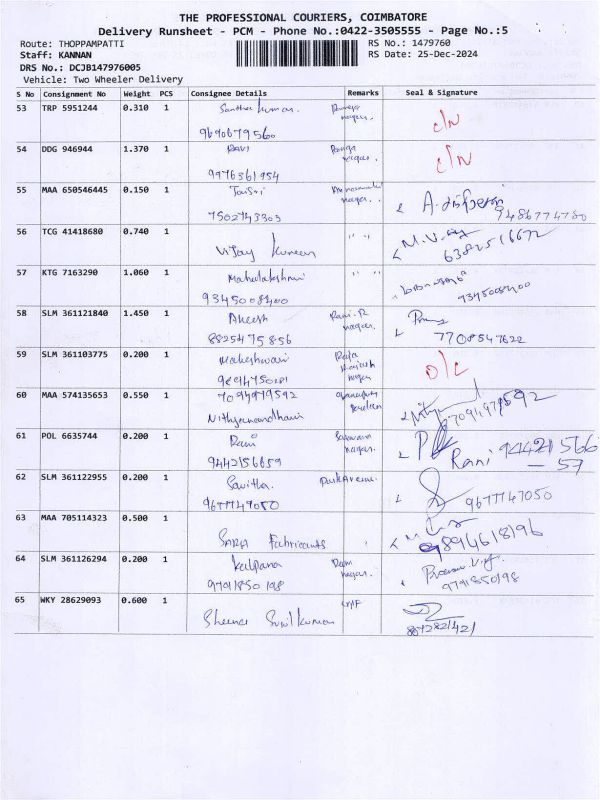 THE PROFESSIONAL COURIERS, COIMBATORE
Delivery Runsheet - PCM - Phone No.:0422-3505555 - Page No.:5
Route: THOPPAMPATTI
RS No.: 1479760
Staff: KANNAN
RS Date: 25-Dec-2024
DRS No.: DCJB147976005
Vehicle: Two Wheeler Delivery
S No Consignment No Weight PCS Consignee Details Remarks Seal & Signature
53 TRP 5951244 0.310 1 Santha kumar. nagar. C/N
9690679560
54 DDG 946944 1.370 1 Ravi nagar. C/N
9976361954
55 MAA 650546445 0.150 1
7502743303 9486774780
56 TCG 41418680 0.740 1 " " M.V.
Vijay Kumar 6382516672
57 KTG 7163290 1.060 1 Mahalakshmi " "
9345008400 9345008400
58 SLM 361121840 1.450 1 Rani.R
8825475856 nagar. 7708547622
59 SLM 361103775 0.200 1 Maheshwari Raja D/L
nagar
60 MAA 574135653 0.550 1 7094979592 7094979592
Nithyanandhani
61 POL 6635744 0.200 1 Rani Saravana
9442156659 nagar. Rani 944215666
- 57
62 SLM 361122955 0.200 1 Savitha. Park Avenue.
9677747050 9677747050
63 MAA 705114323 0.500 1
SARA Fabricants 9894618196
64 SLM 361126294 0.200 1 Kalpana Ram
9791850198 nagar. 9791850198
65 WKY 28629093 0.600 1
Sheena Sunil kumar